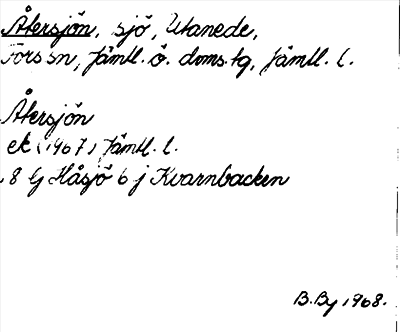 Åkersjön, sjö, Utanede,
Fors sn, Jämtl. ö. doms.tg, Jämtl. l.
Åkersjön
ek (1967) Jämtl. l.
18 G Håsjö 6 j Kvarnbacken
B. By 1968.